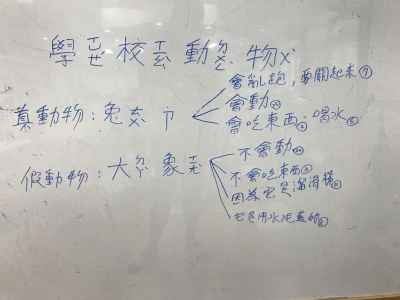 學校動物
會亂跑，要關起來
真動物：兔
會動
會吃東西、喝水
不會動
假動物：大象
不會吃東西
因為它是溜滑梯
它是用水泥蓋的